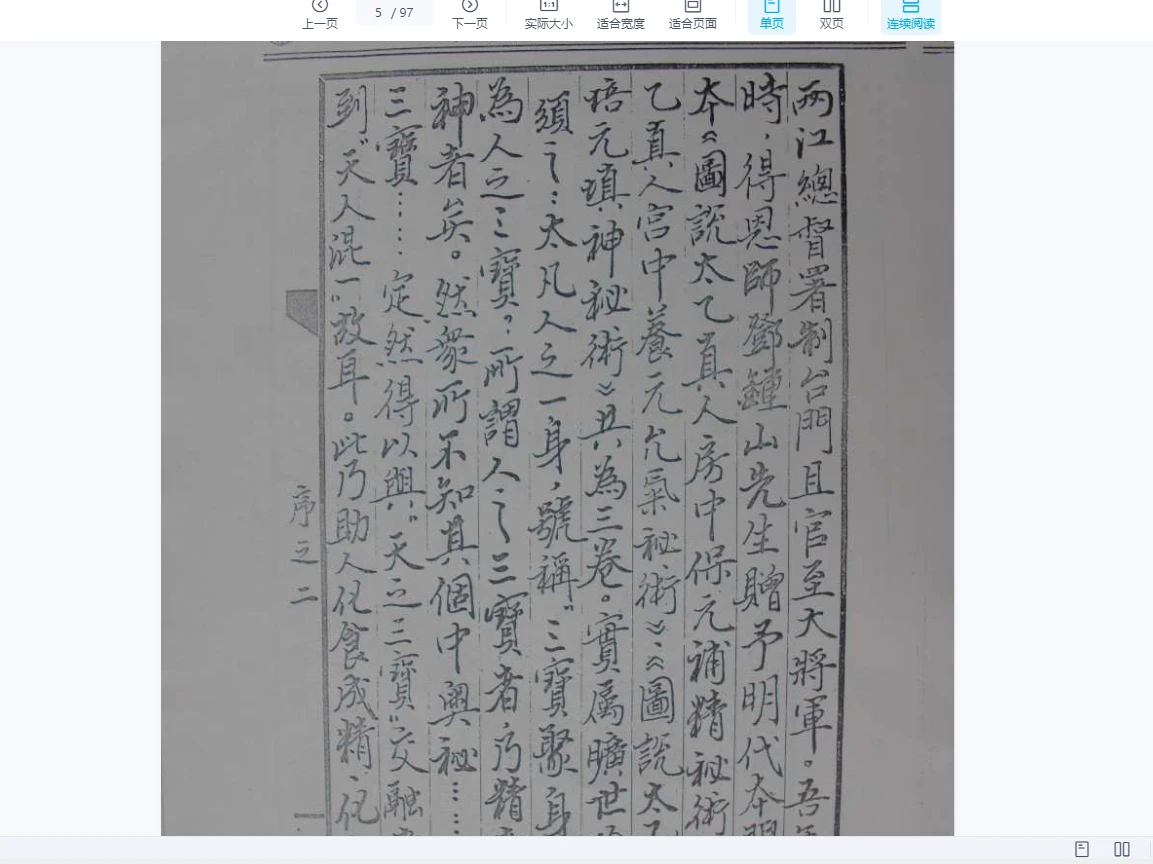 上一页
5 / 97
下一页
实际大小
适合宽度
适合页面
单页
双页
连续阅读
兩江總督署制台門且官至大將軍。吾
時，得恩師鄧鍾山先生贈予明代本
本《圖說太乙真人房中保元補精秘術
乙真人宮中養元允氣秘術》、《圖說太
培元填神秘術》共為三卷。實屬曠世
須之：太凡人之一身，號稱“三寶聚身
為人之三寶？所謂人之三寶者，乃精
神者矣。然衆所不知其個中奧秘……
三寶……定然得以與“天之三寶”交融
到“天人混一”故耳。此乃助人化食成精、化
序之二